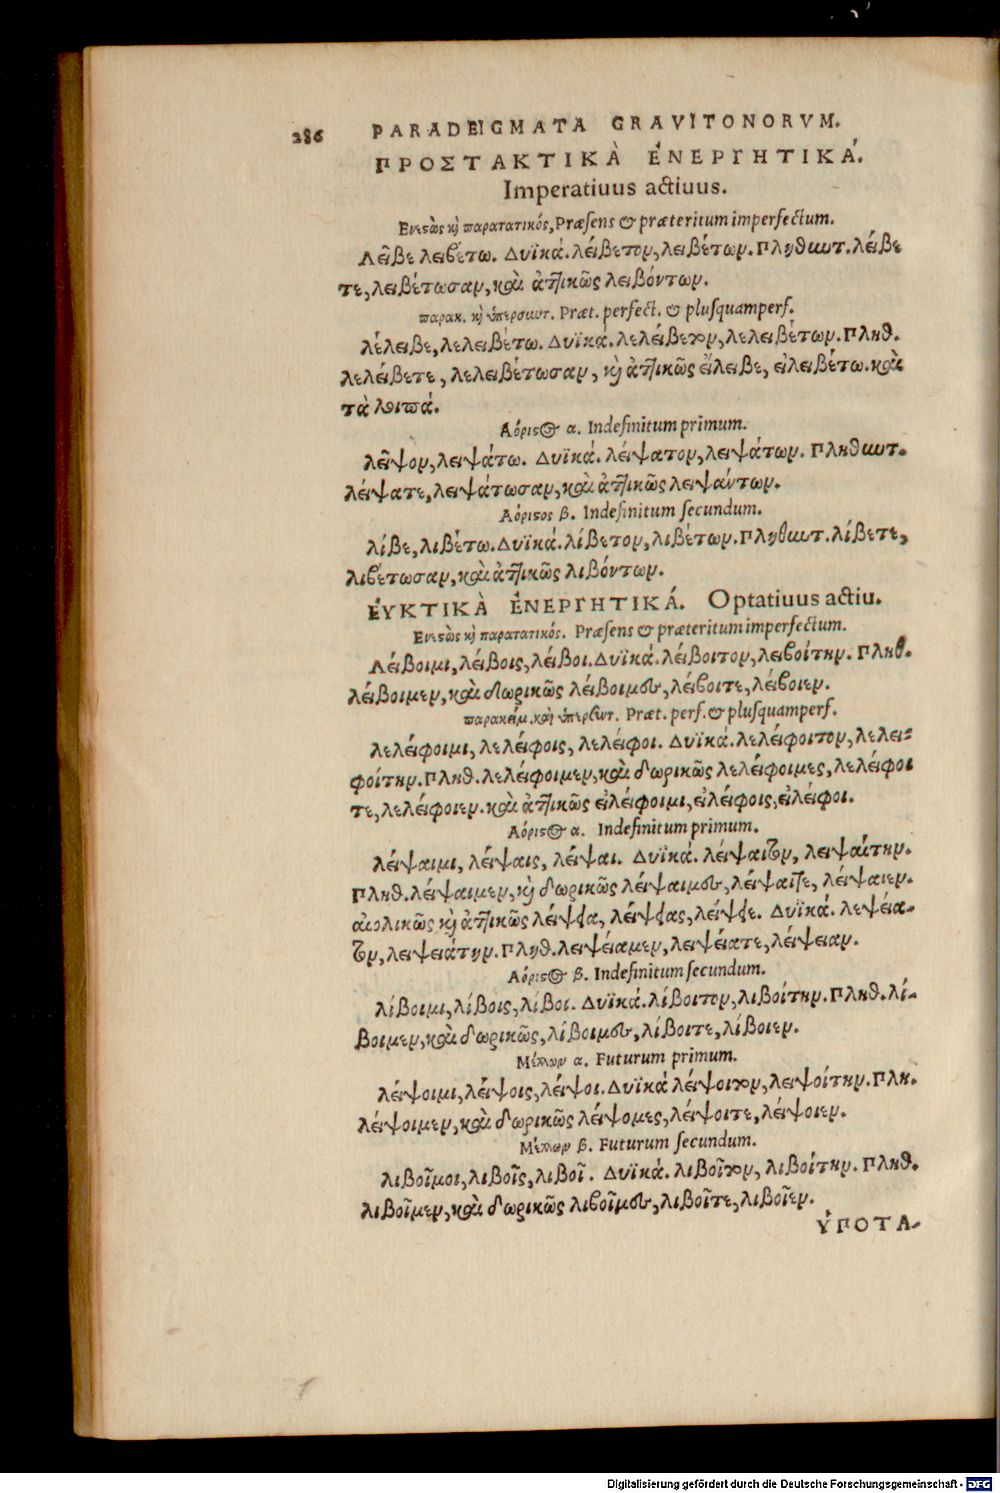 286 PARADEIGMATA GRAVITONORVM.
ΠΡΟΣΤΑΚΤΙΚᾺ ἘΝΕΡΓΗΤΙΚΆ.
Imperatiuus actiuus.
Ενεστὼς κὶ παρατατικός, Præsens & præteritum imperfectum.
Λεῖβε λειβέτω. Δυϊκά. λείβετον, λειβέτων. Πληθωτ. λείβε
τε, λειβέτωσαν, καὶ ἀττικῶς λειβόντων.
παρακ. κὶ ὑπερσωτ. Præt. perfect. & plusquamperf.
λέλειβε, λελειβέτω. Δυϊκά. λελείβετον, λελειβέτων. Πληθ.
λελείβετε, λελειβέτωσαν, κὶ ἀττικῶς εἴλειβε, εἰλειβέτω. καὶ
τὰ λοιπά.
Αόριστος α. Indefinitum primum.
λεῖψον, λειψάτω. Δυϊκά. λείψατον, λειψάτων. Πληθωτ.
λείψατε, λειψάτωσαν, καὶ ἀττικῶς λειψάντων.
Αόριστος β. Indefinitum secundum.
λίβε, λιβέτω. Δυϊκά. λίβετον, λιβέτων. Πληθωτ. λίβετε,
λιβέτωσαν, καὶ ἀττικῶς λιβόντων.
ἘΥΚΤΙΚᾺ ἘΝΕΡΓΗΤΙΚΆ. Optatiuus actiu.
Ενεστὼς κὶ παρατατικός. Præsens & præteritum imperfectum.
Λείβοιμι, λείβοις, λείβοι. Δυϊκά. λείβοιτον, λειβοίτην. Πληθ.
λείβοιμεν, καὶ δωρικῶς λείβοιμες, λείβοιτε, λείβοιεν.
παρακείμ. καὶ ὑπερσωτ. Præt. perf. & plusquamperf.
λελείφοιμι, λελείφοις, λελείφοι. Δυϊκά. λελείφοιτον, λελει-
φοίτην. Πληθ. λελείφοιμεν, καὶ δωρικῶς λελείφοιμες, λελείφοι
τε, λελείφοιεν. καὶ ἀττικῶς εἰλείφοιμι, εἰλείφοις, εἰλείφοι.
Αόριστος α. Indefinitum primum.
λείψαιμι, λείψαις, λείψαι. Δυϊκά. λείψαιτον, λειψαίτην.
Πληθ. λείψαιμεν, κὶ δωρικῶς λείψαιμες, λείψαιτε, λείψαιεν.
αἰολικῶς κὶ ἀττικῶς λείψεια, λείψειας, λείψειε. Δυϊκά. λεψεία-
τον, λειψειάτην. Πληθ. λειψείαμεν, λειψείατε, λείψειαν.
Αόριστος β. Indefinitum secundum.
λίβοιμι, λίβοις, λίβοι. Δυϊκά. λίβοιτον, λιβοίτην. Πληθ. λί-
βοιμεν, καὶ δωρικῶς, λίβοιμες, λίβοιτε, λίβοιεν.
Μέλλων α. Futurum primum.
λείψοιμι, λείψοις, λείψοι. Δυϊκά λείψοιτον, λειψοίτην. Πλη.
λείψοιμεν, καὶ δωρικῶς λείψομες, λείψοιτε, λείψοιεν.
Μέλλων β. Futurum secundum.
λιβοῖμοι, λιβοῖς, λιβοῖ. Δυϊκά. λιβοῖτον, λιβοίτην. Πληθ.
λιβοῖμεν, καὶ δωρικῶς λιβοῖμες, λιβοῖτε, λιβοῖεν.
ὙΠΟΤΑ-
Digitalisierung gefördert durch die Deutsche Forschungsgemeinschaft - DFG